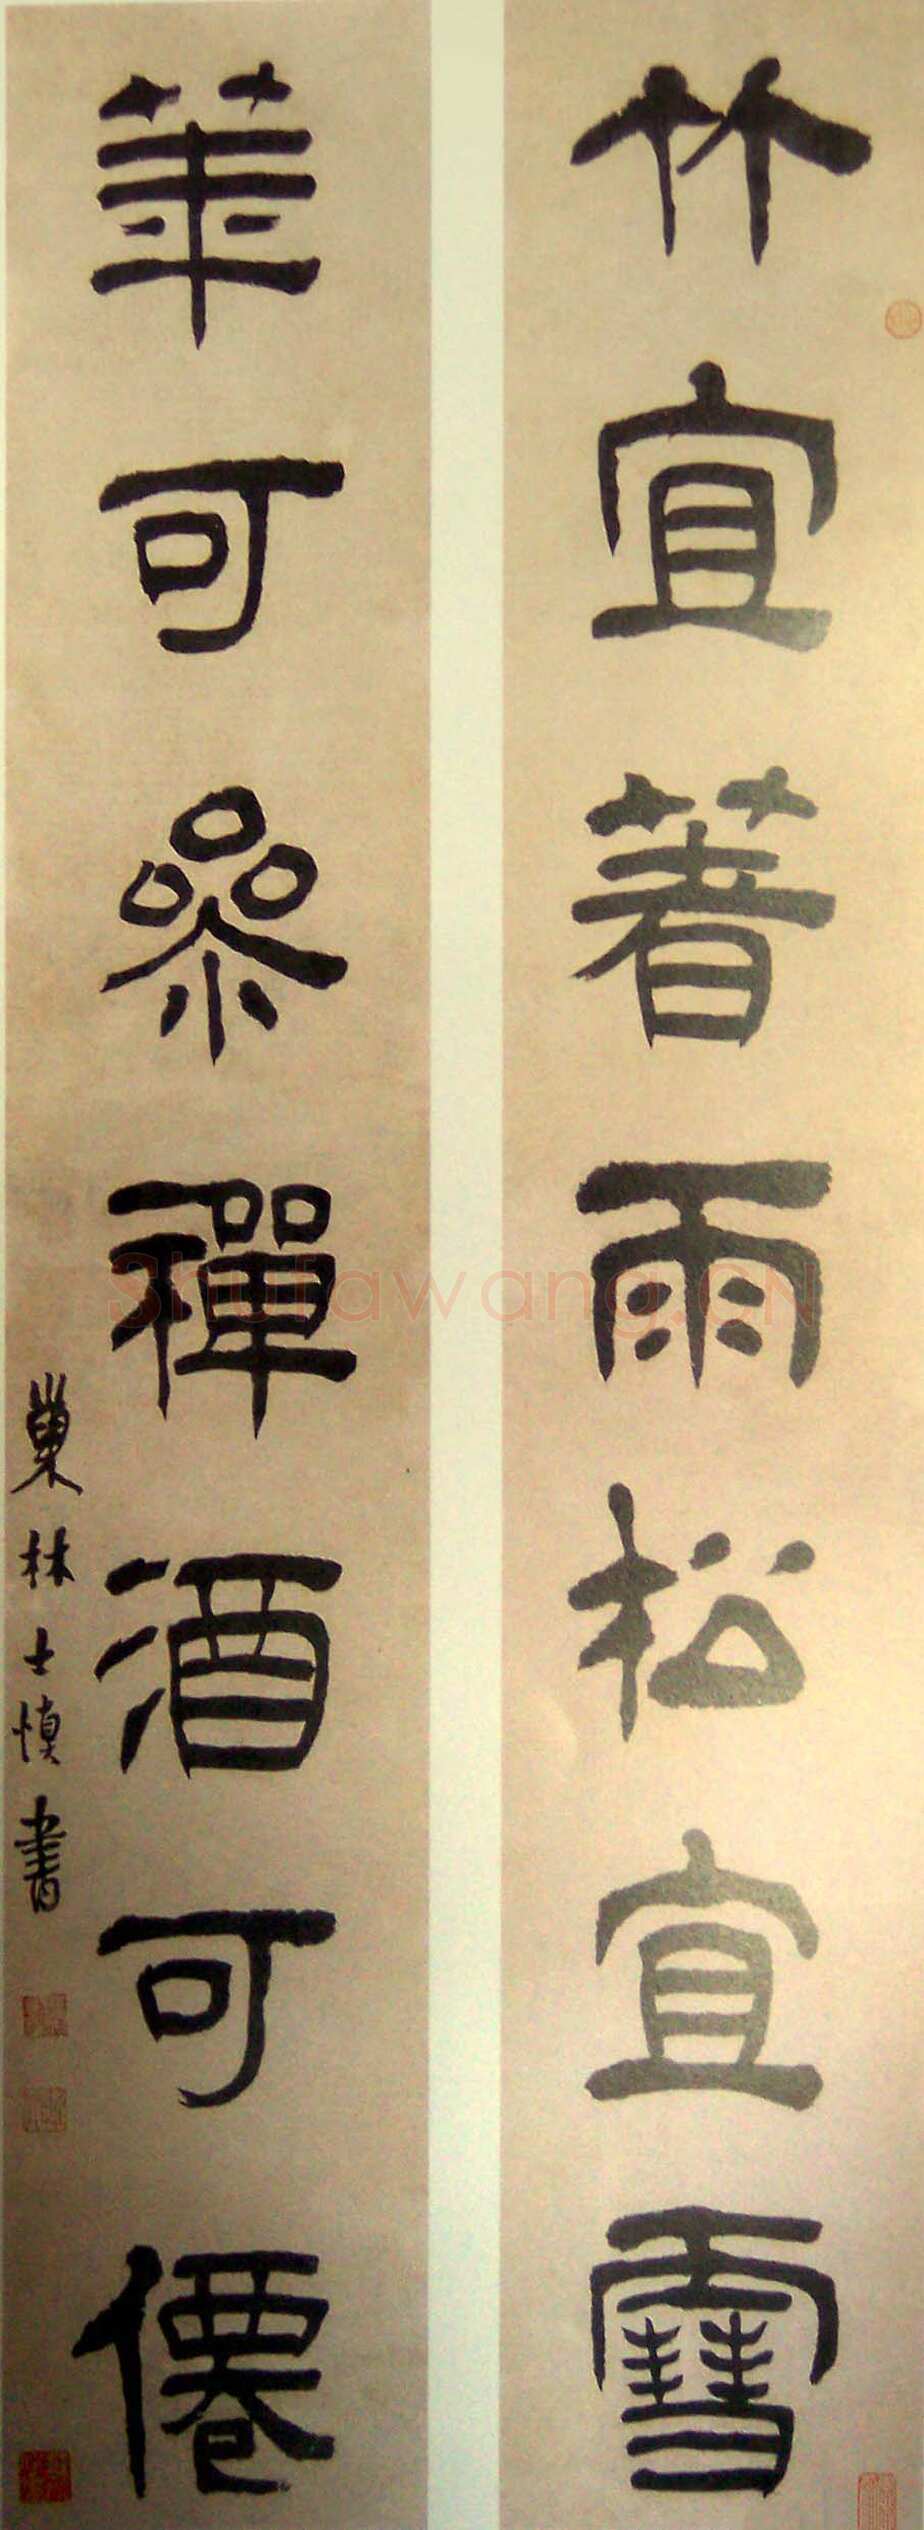 竹宜著雨松宜雪
華可參禪酒可僊
巢林士慎書
Shufawang.CN